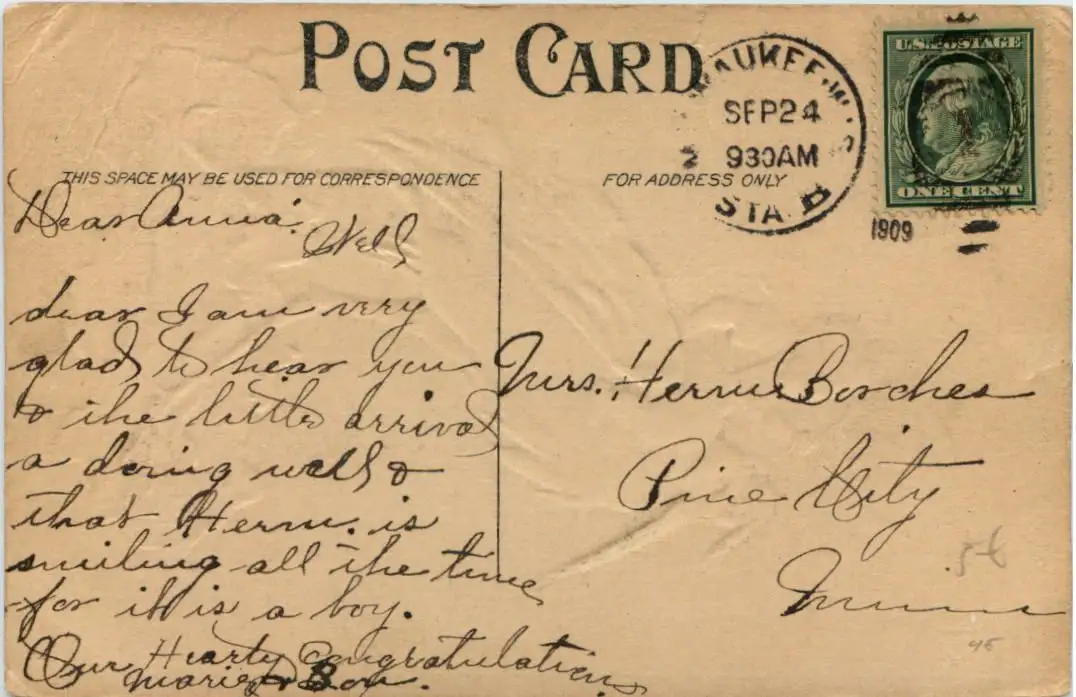 POST CARD
THIS SPACE MAY BE USED FOR CORRESPONDENCE
Dear Anna.
Well
dear I am very
glad to hear you
& the little arrival
a doing well &
that Herm. is
smiling all the time
for it is a boy.
Our Hearty Congratulations
Marie &
FOR ADDRESS ONLY
Mrs. Herm Borches
Pine City
Minn
WAUKEE, WIS
SEP 24
930AM
STA. B
1909
U.S. POSTAGE
ONE CENT